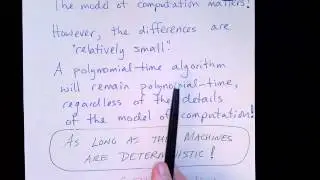 The model of computation matters!
However, the differences are
"relatively small".
A polynomial-time algorithm
will remain polynomial-time,
regardless of the details
of the model of computation!
AS LONG AS THE MACHINES
ARE DETERMINISTIC!